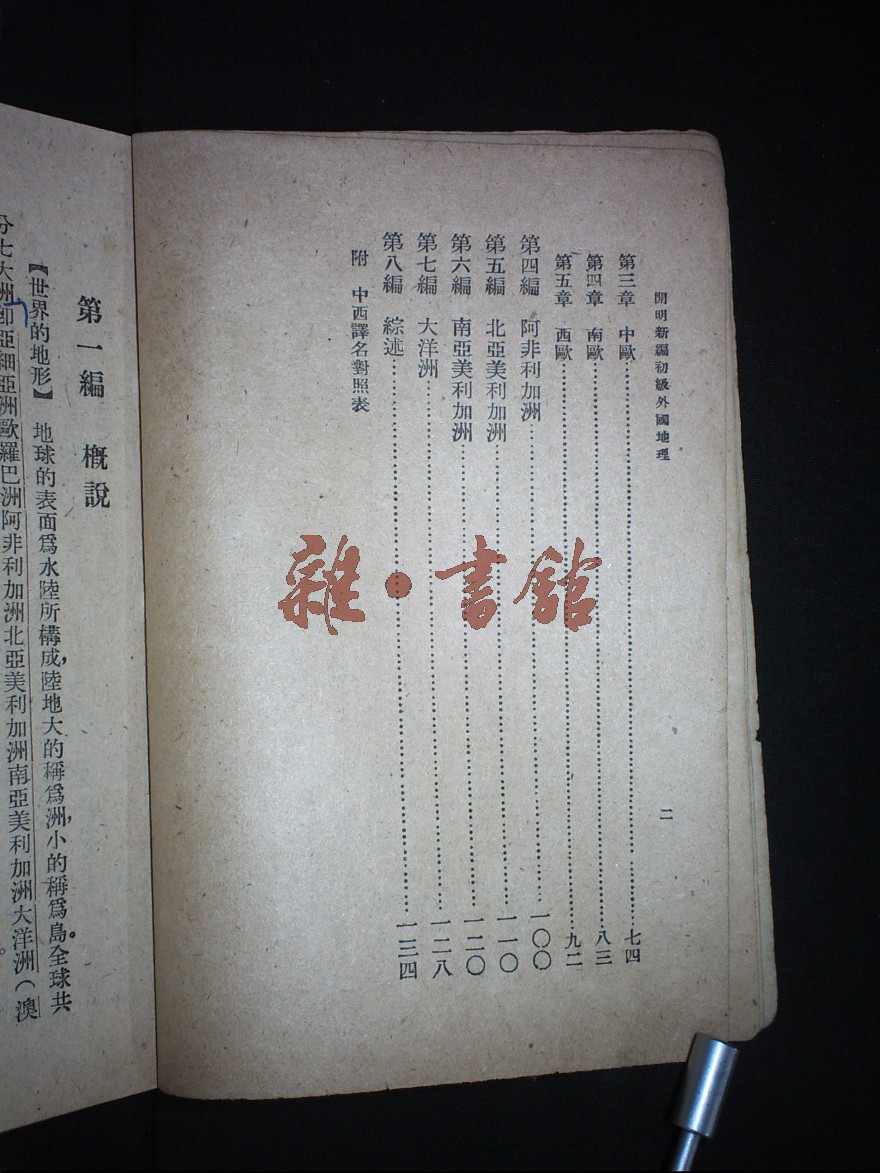 開明新編初級外國地理
二
第三章 中歐 七四
第四章 南歐 八三
第五章 西歐 九二
第四編 阿非利加洲 一〇〇
第五編 北亞美利加洲 一一〇
第六編 南亞美利加洲 一二〇
第七編 大洋洲 一二八
第八編 綜述 一三四
附 中西譯名對照表
第一編 概說
【世界的地形】 地球的表面爲水陸所構成,陸地大的稱爲洲,小的稱爲島。全球共
分七大洲,卽亞細亞洲歐羅巴洲阿非利加洲北亞美利加洲南亞美利加洲大洋洲(澳
雜·書館